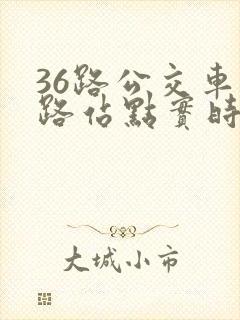 36路公交車
路站點實時
大城小市